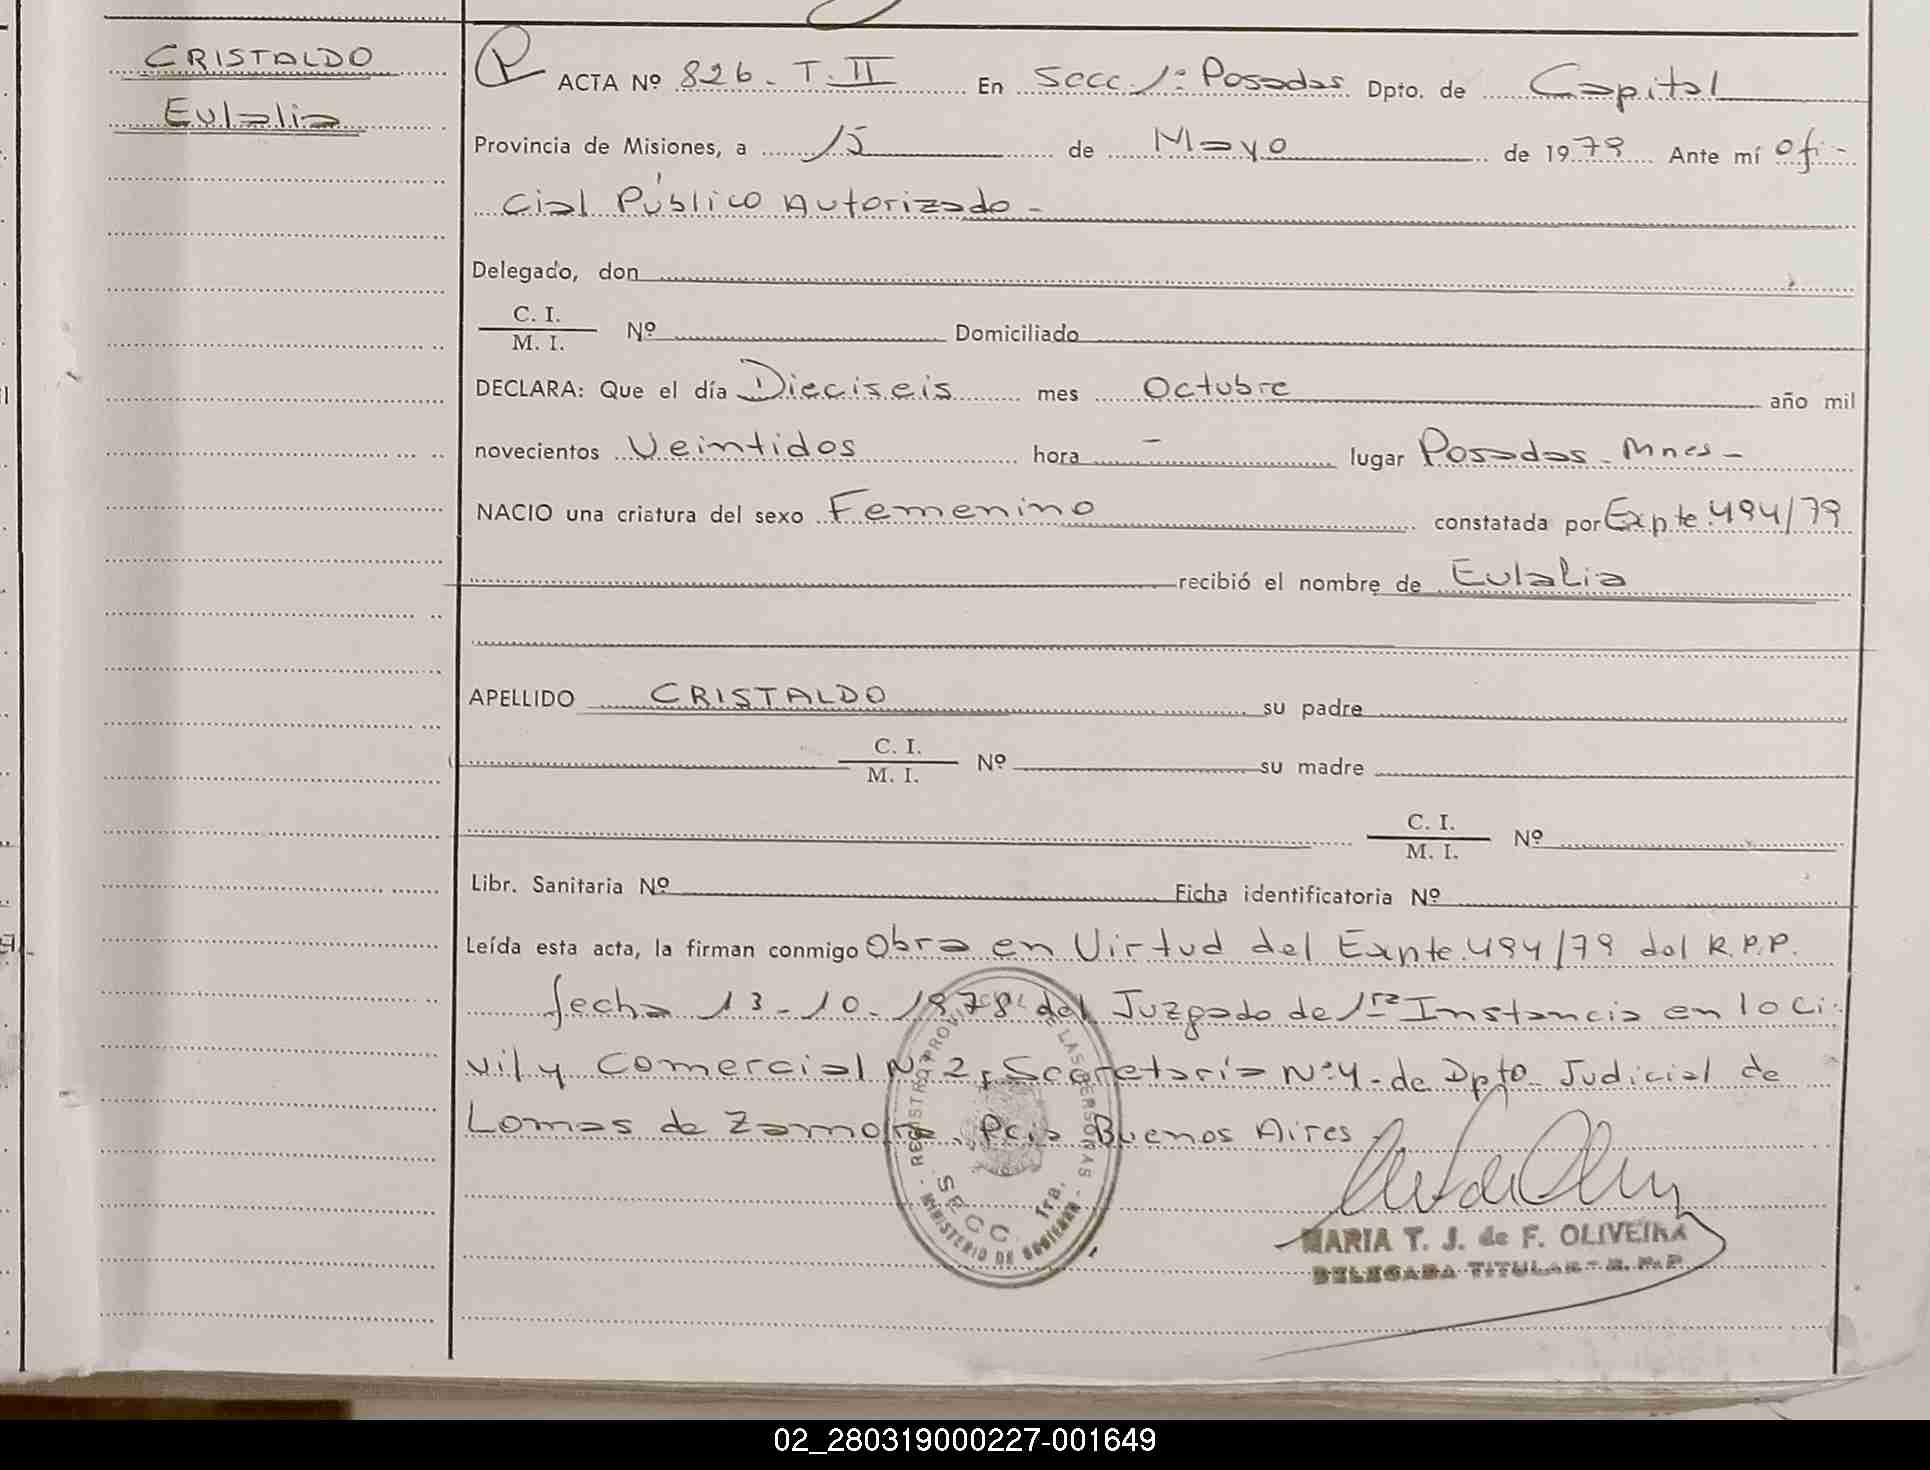 CRISTALDO
Eulalia
ACTA Nº 826 - T. II En Secc. 1ª Posadas Dpto. de Capital
Provincia de Misiones, a 15 de Mayo de 1979 Ante mí ofi-
cial Público Autorizado -
Delegado, don
C. I.
M. I. Nº Domiciliado
DECLARA: Que el día Dieciseis mes Octubre año mil
novecientos Veintidos hora - lugar Posadas - Mnes -
NACIO una criatura del sexo Femenino constatada por Expte. 494/79
recibió el nombre de Eulalia
APELLIDO CRISTALDO su padre
C. I.
M. I. Nº su madre
C. I.
M. I. Nº
Libr. Sanitaria Nº Ficha identificatoria Nº
Leída esta acta, la firman conmigo Obra en Virtud del Expte. 494/79 del R.P.P.
fecha 13-10-1978 del Juzgado de 1ra Instancia en lo Ci-
vil y Comercial Nº 2, Secretaría Nº 4 - de Dpto Judicial de
Lomas de Zamora. Pcia Buenos Aires
REGISTRO PROVINCIAL DE LAS PERSONAS
SECC. 1ra.
- MINISTERIO DE GOBIERNO -
MARIA T. J. de F. OLIVEIRA
DELEGADA TITULAR - R. P. P.
02_280319000227-001649